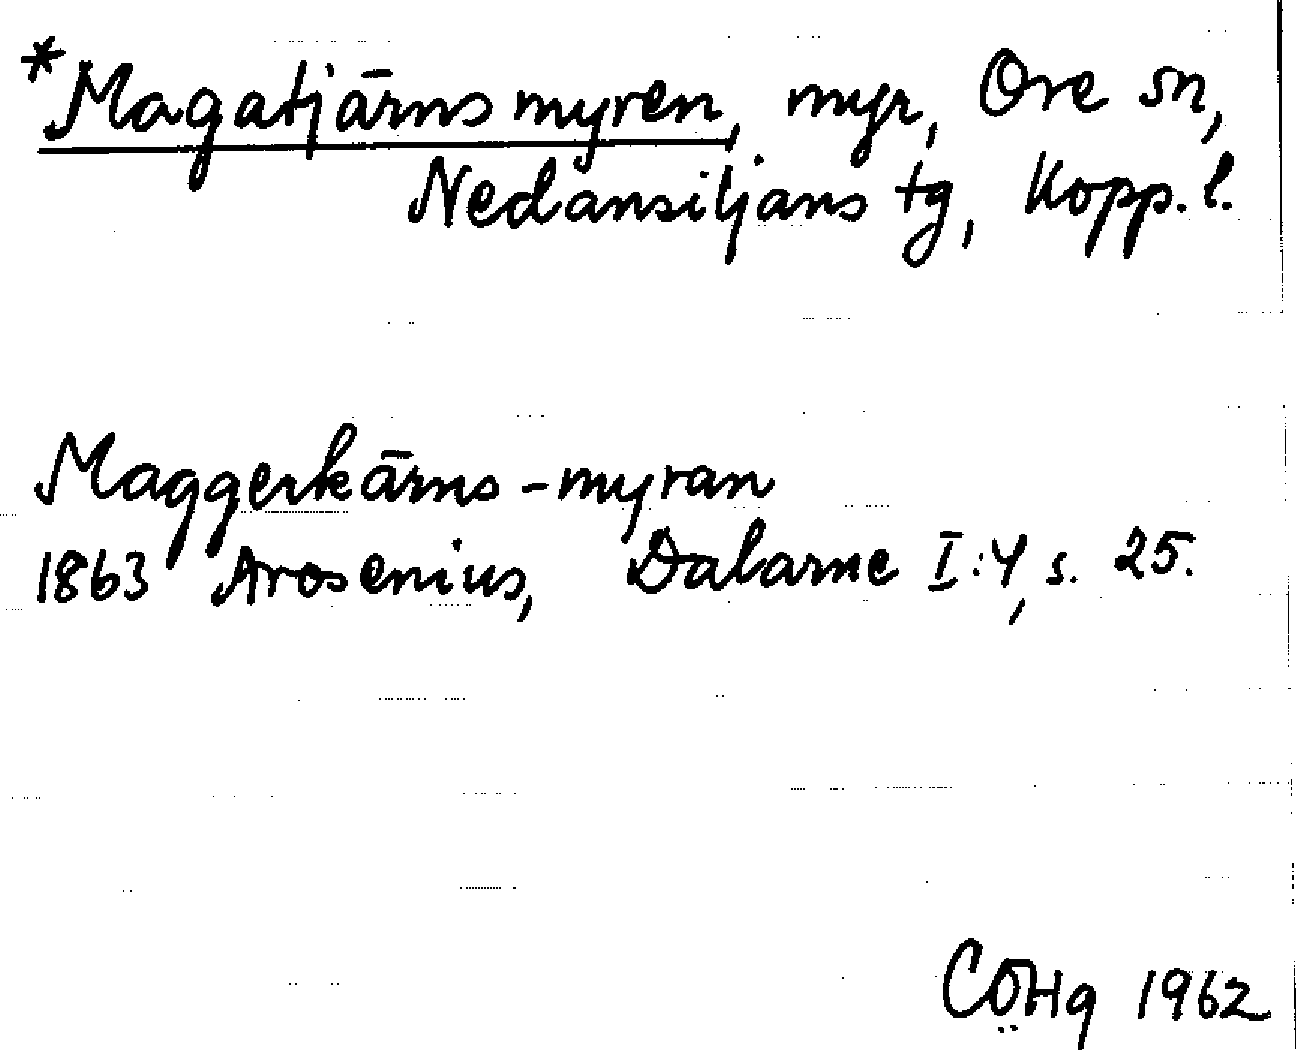 *Magatjärnsmyren, myr, Ore sn,
Nedansiljans tg, Kopp. l.
Maggerkärns-myran
1863 Arosenius, Dalarne I:4, s. 25.
CÖHg 1962